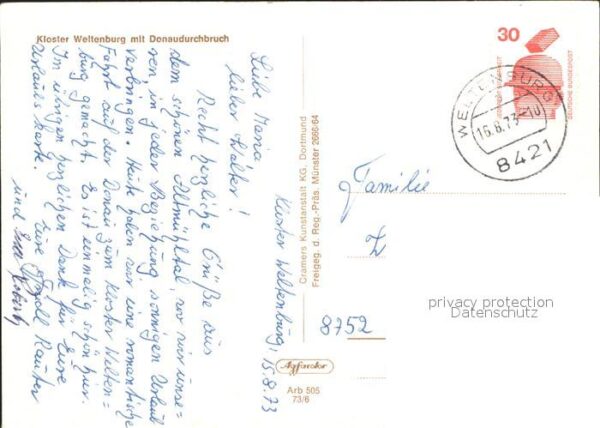 Kloster Weltenburg mit Donaudurchbruch
Kloster Weltenburg, 15.8.73
Liebe Maria
lieber Walter!
Recht herzliche Grüße aus
dem schönen Altmühltal, wo wir unse=
ren, in jeder Beziehung sonnigen Urlaub
verbringen. Heute haben wir eine romantische
Fahrt auf der Donau zum Kloster Welten=
burg gemacht. Es ist einmalig schön hier.
Im übrigen herzlichen Dank für Eure
Urlaubskarte.
Eure
und
Cramers Kunstanstalt KG, Dortmund
Freigeg. d. Reg.-Präs. Münster 2666/64
Azfinstor
Arb 505
73/6
30
DEUTSCHE BUNDESPOST
WELTENBURG
15.8.73-10
8421
Familie
8752
privacy protection
Datenschutz